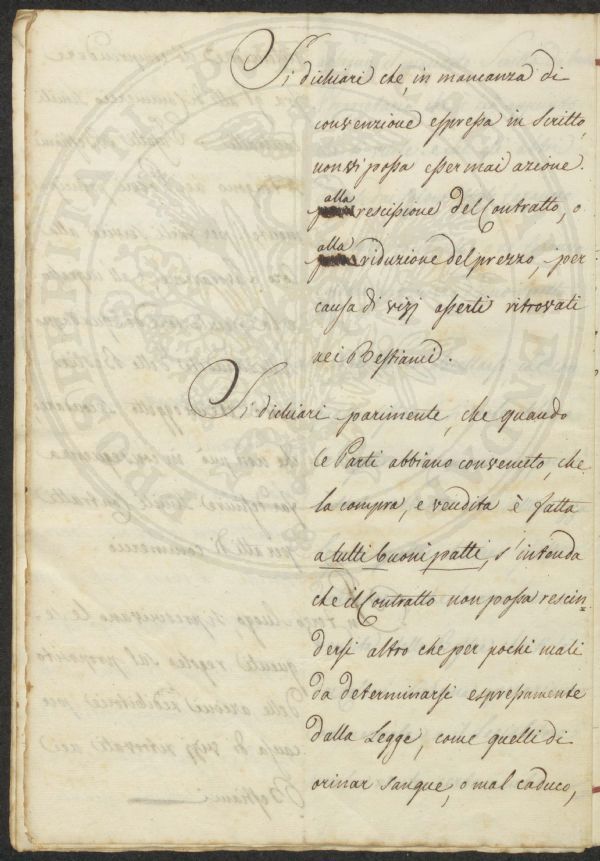 Si dichiari che, in mancanza di
convenzione espressa in scritto,
non vi possa esser mai azione.
alla rescissione del Contratto, o
alla riduzione del prezzo, per
causa di vizj asserti ritrovati
nei Bestiami.
Si dichiari parimente, che quando
le Parti abbiano convenuto, che
la compra, e vendita è fatta
a tutti buoni patti, s'intenda
che il Contratto non possa rescin=
dersi altro che per pochi mali
da determinarsi espressamente
dalla Legge, come quelli di
orinar sangue, o mal caduco,